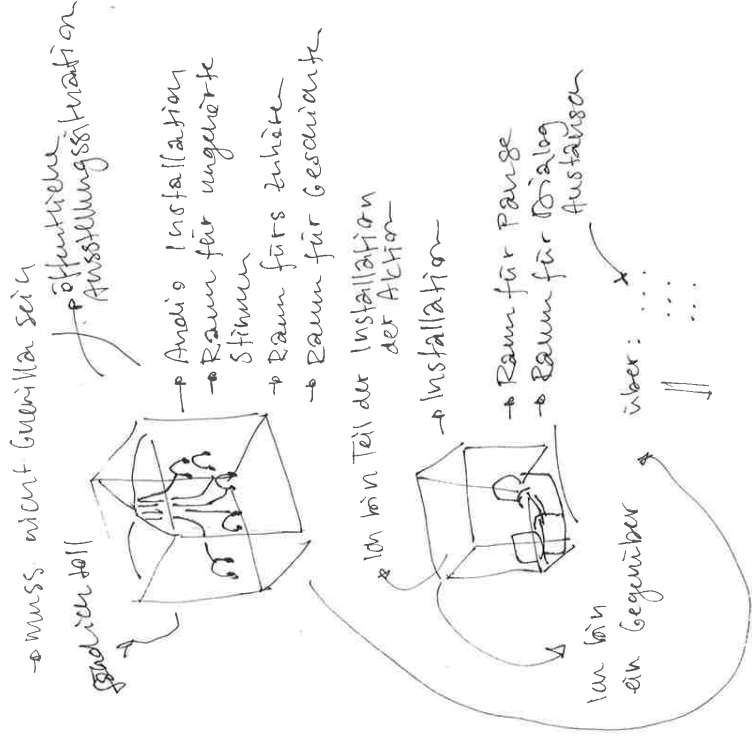 → muss nicht Guerilla sein
→ öffentliche
Ausstellungssituation
→ Audio Installation
→ Raum für ungehörte
Stimmen
→ Raum fürs zuhören
→ Raum für Geschichten
Ich bin Teil der Installation
der Aktion
→ Installation
→ Raum für Pause
→ Raum für Dialog
Austausch
über: ...
...
...
Ich bin
ein Gegenüber